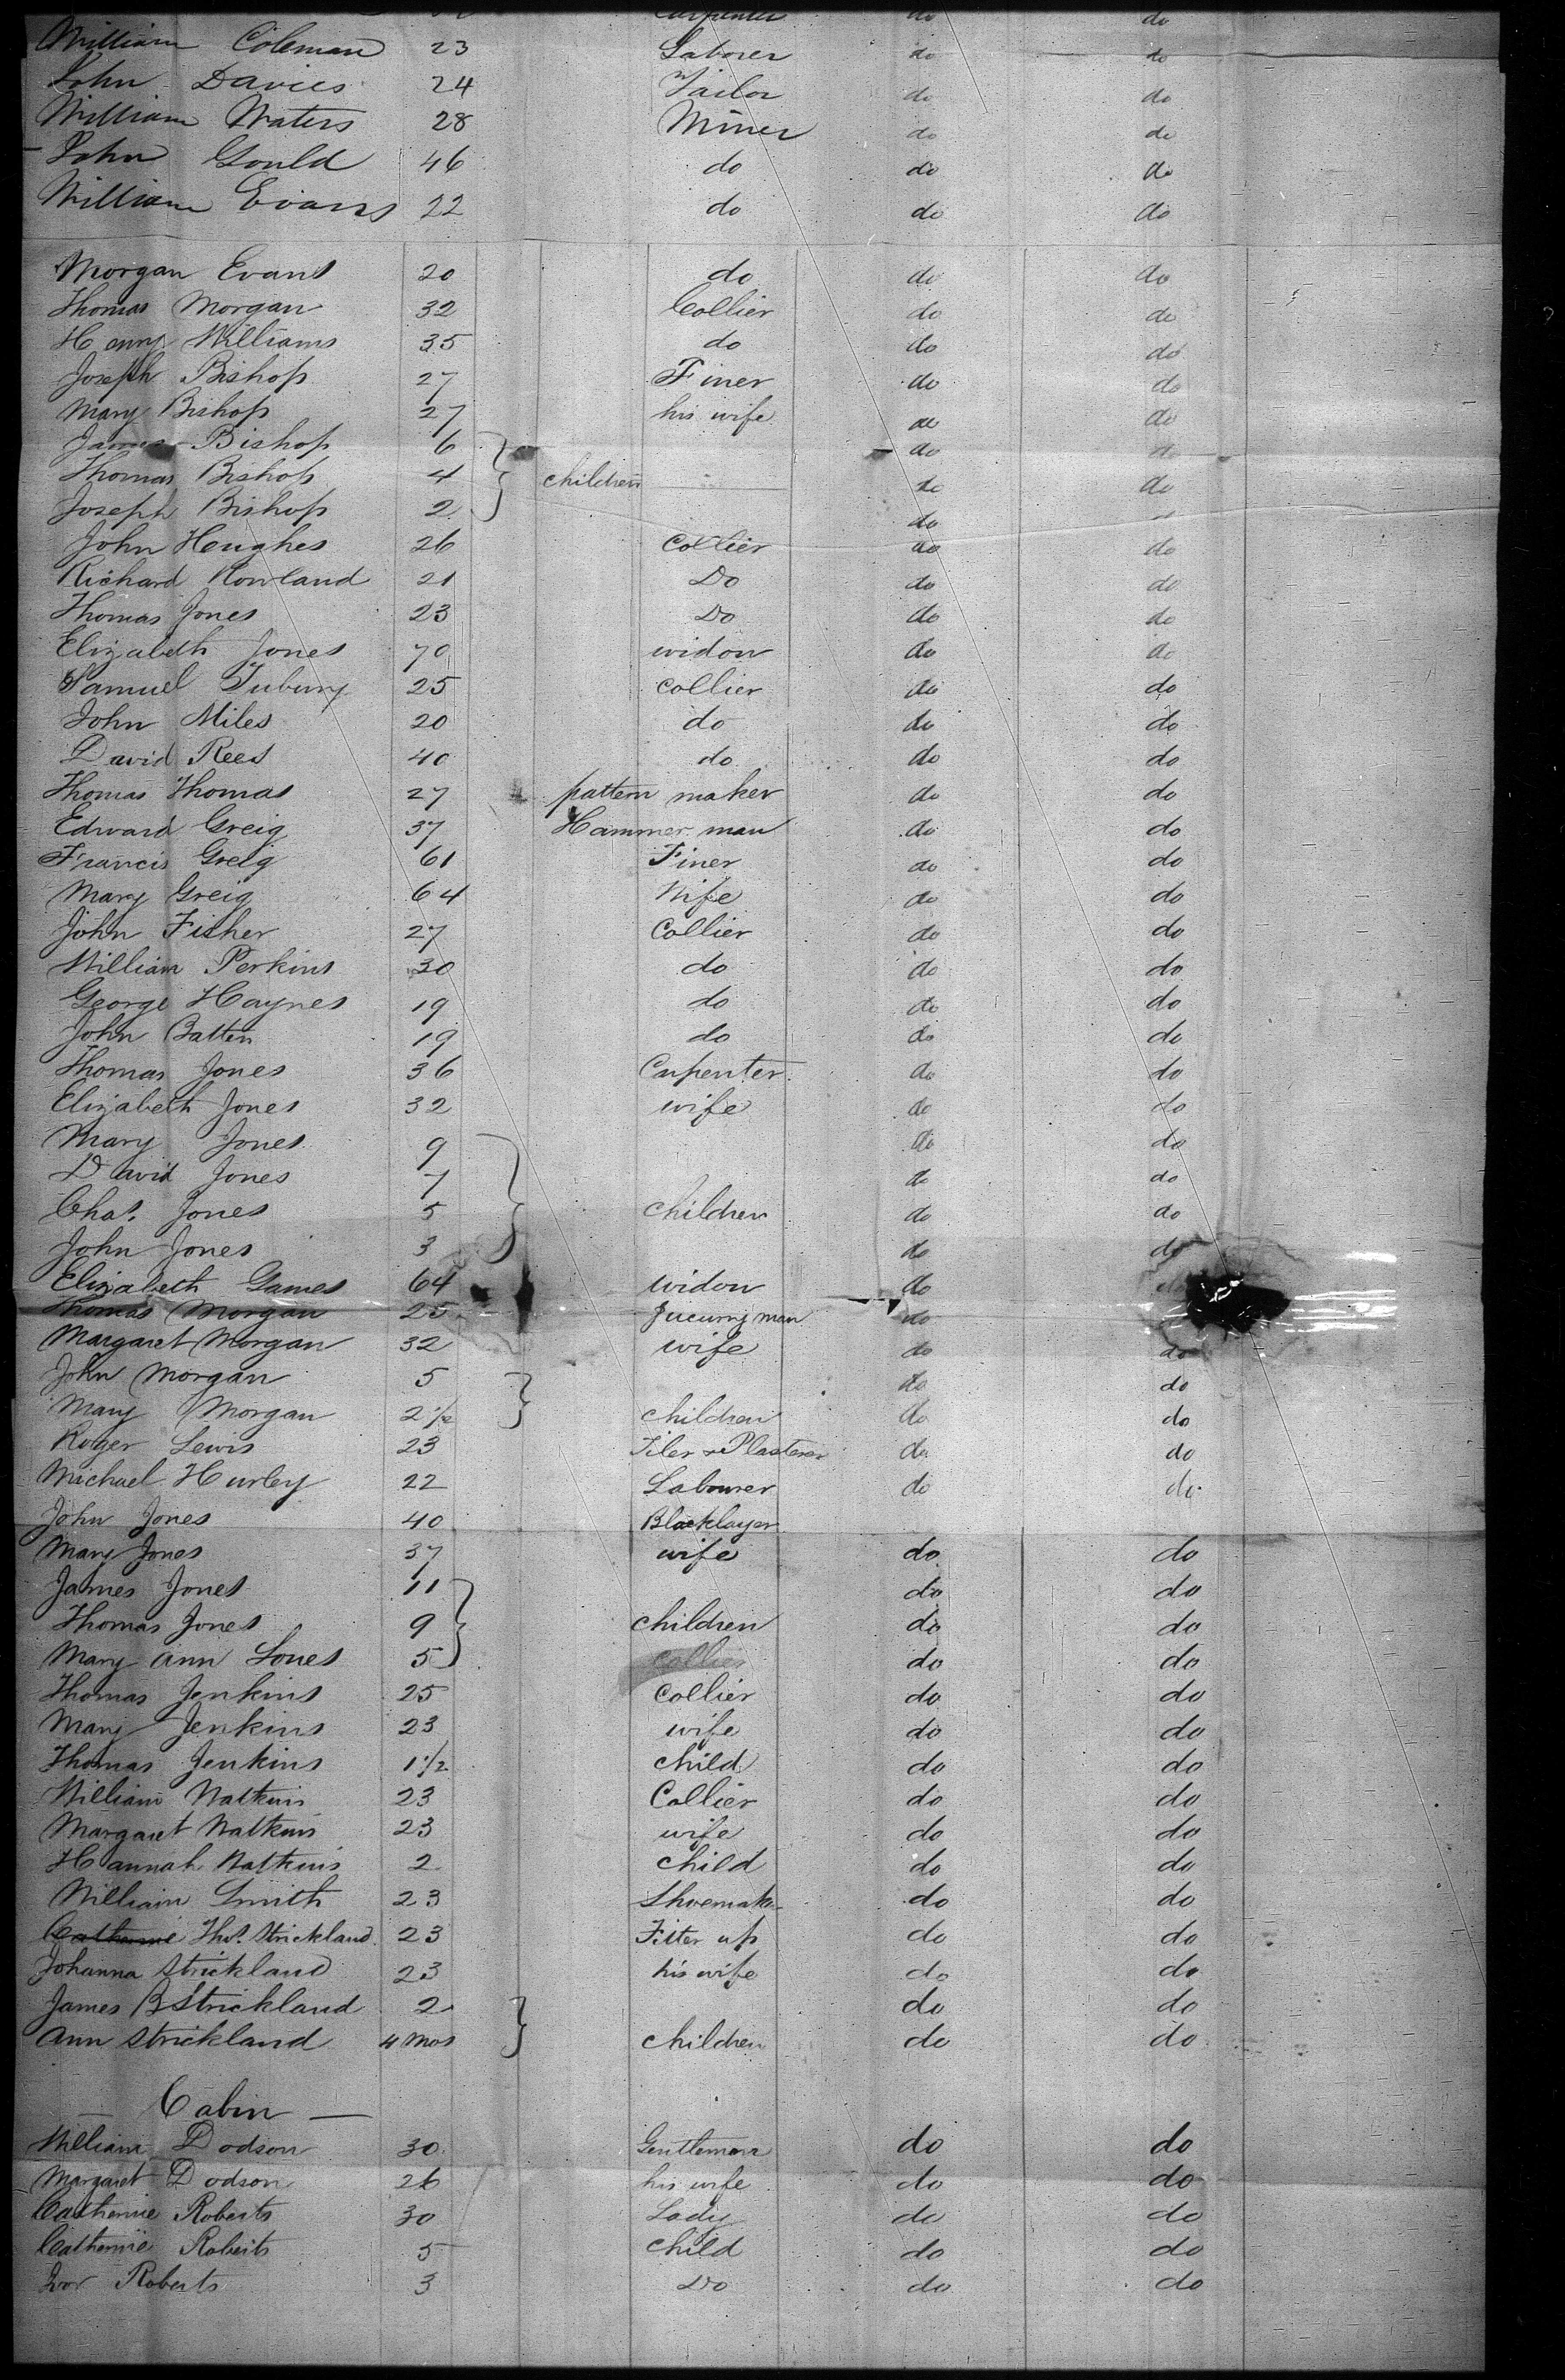 Carpenter do do
William Coleman 23 Laborer do do
John Davies 24 Tailor do do
William Waters 28 Miner do do
John Gould 46 do do do
William Evans 22 do do do
Morgan Evans 20 do do do
Thomas Morgan 32 Collier do do
Henry Williams 35 do do do
Joseph Bishop 27 Finer do do
Mary Bishop 27 his wife do do
James Bishop 6 do do
Thomas Bishop 4 children do do
Joseph Bishop 2 do
John Hughes 26 Collier do do
Richard Rowland 21 Do do do
Thomas Jones 23 Do do do
Elizabeth Jones 70 widow do do
Samuel 25 Collier do do
John Miles 20 do do do
David Rees 40 do do do
Thomas Thomas 27 pattern maker do do
Edward Greig 37 Hammer man do do
Francis Greig 61 Finer do do
Mary Greig 64 Wife do do
John Fisher 27 Collier do do
William Perkins 30 do do do
George Haynes 19 do do do
John Batten 19 do do do
Thomas Jones 36 Carpenter do do
Elizabeth Jones 32 wife do do
Mary Jones 9 do do
David Jones 7 do do
Chas. Jones 5 children do do
John Jones 3 do do
Elizabeth Games 64 widow do do
Thomas Morgan 25 man do
Margaret Morgan 32 wife do do
John Morgan 5 do do
Mary Morgan 2 1/2 children do do
Roger Lewis 23 Tiler & Plasterer do do
Michael Hurley 22 Labourer do do
John Jones 40 Blocklayer
Mary Jones 37 wife do do
James Jones 11 do do
Thomas Jones 9 children do do
Mary Ann Jones 5 Collier do do
Thomas Jenkins 25 Collier do do
Mary Jenkins 23 wife do do
Thomas Jenkins 1 1/2 child do do
William Watkins 23 Collier do do
Margaret Watkins 23 wife do do
Hannah Watkins 2 child do do
William Smith 23 Shoemaker do do
Catherine Thos. Strickland 23 Fitter up do do
Johanna Strickland 23 his wife do do
James B Strickland 2 do do
Ann Strickland 4 mos children do do
— Cabin —
William Dodson 30 Gentleman do do
Margaret Dodson 26 his wife do do
Catherine Roberts 30 Lady do do
Catherine Roberts 5 child do do
Ivor Roberts 3 Do do do